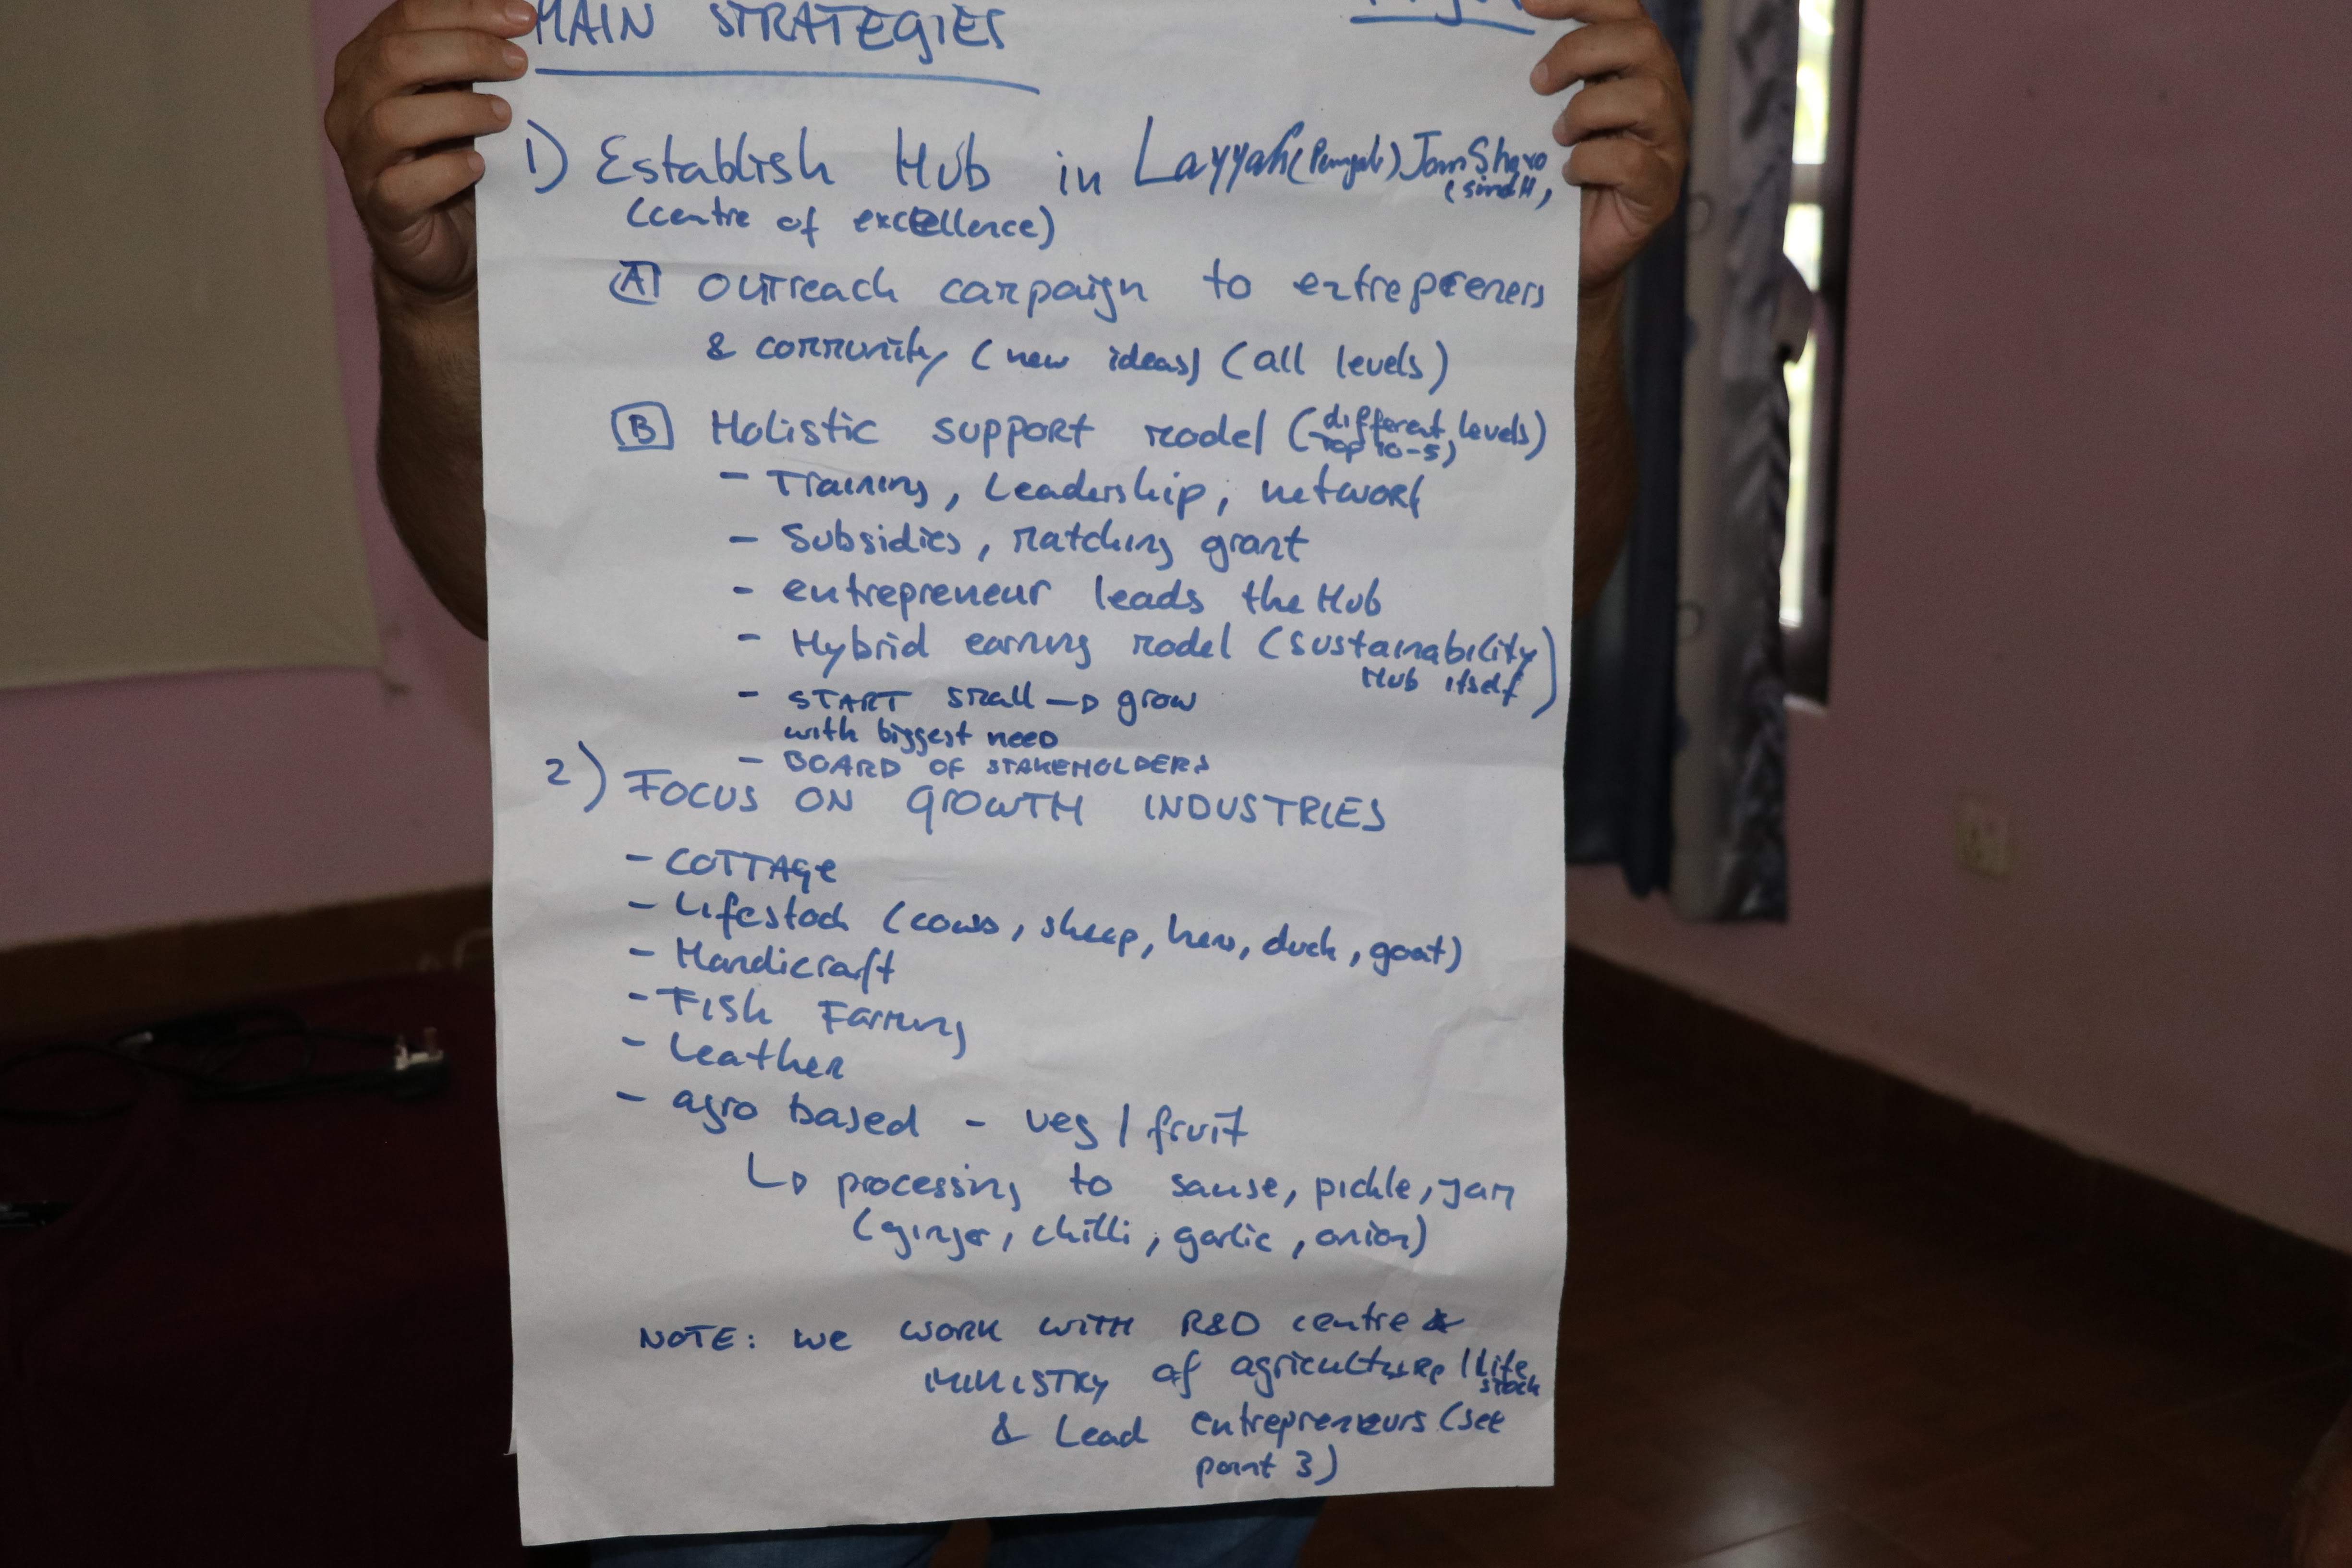 MAIN STRATEGIES
1) Establish Hub in Layyah (Punjab) JamShoro
(sindH)
(centre of excellence)
A outreach campaign to entrepreeners
& community (new ideas) (all levels)
B Holistic support model (different levels)
Top 10-5)
- Training, Leadership, network
- Subsidies, matching grant
- entrepreneur leads the Hub
- Hybrid earning model (sustainability
Hub itself)
- START small → grow
with biggest need
- BOARD OF STAKEHOLDERS
2) FOCUS ON GROWTH INDUSTRIES
- COTTAGE
- Lifestock (cows, sheep, hens, duck, goat)
- Handicraft
- Fish Farming
- Leather
- agro based - veg / fruit
↳ processing to sause, pickle, jam
(ginger, chilli, garlic, onion)
NOTE: we work with R&D centre &
MINISTRY of agriculture / Life
stock
& Lead entrepreneurs (see
point 3)